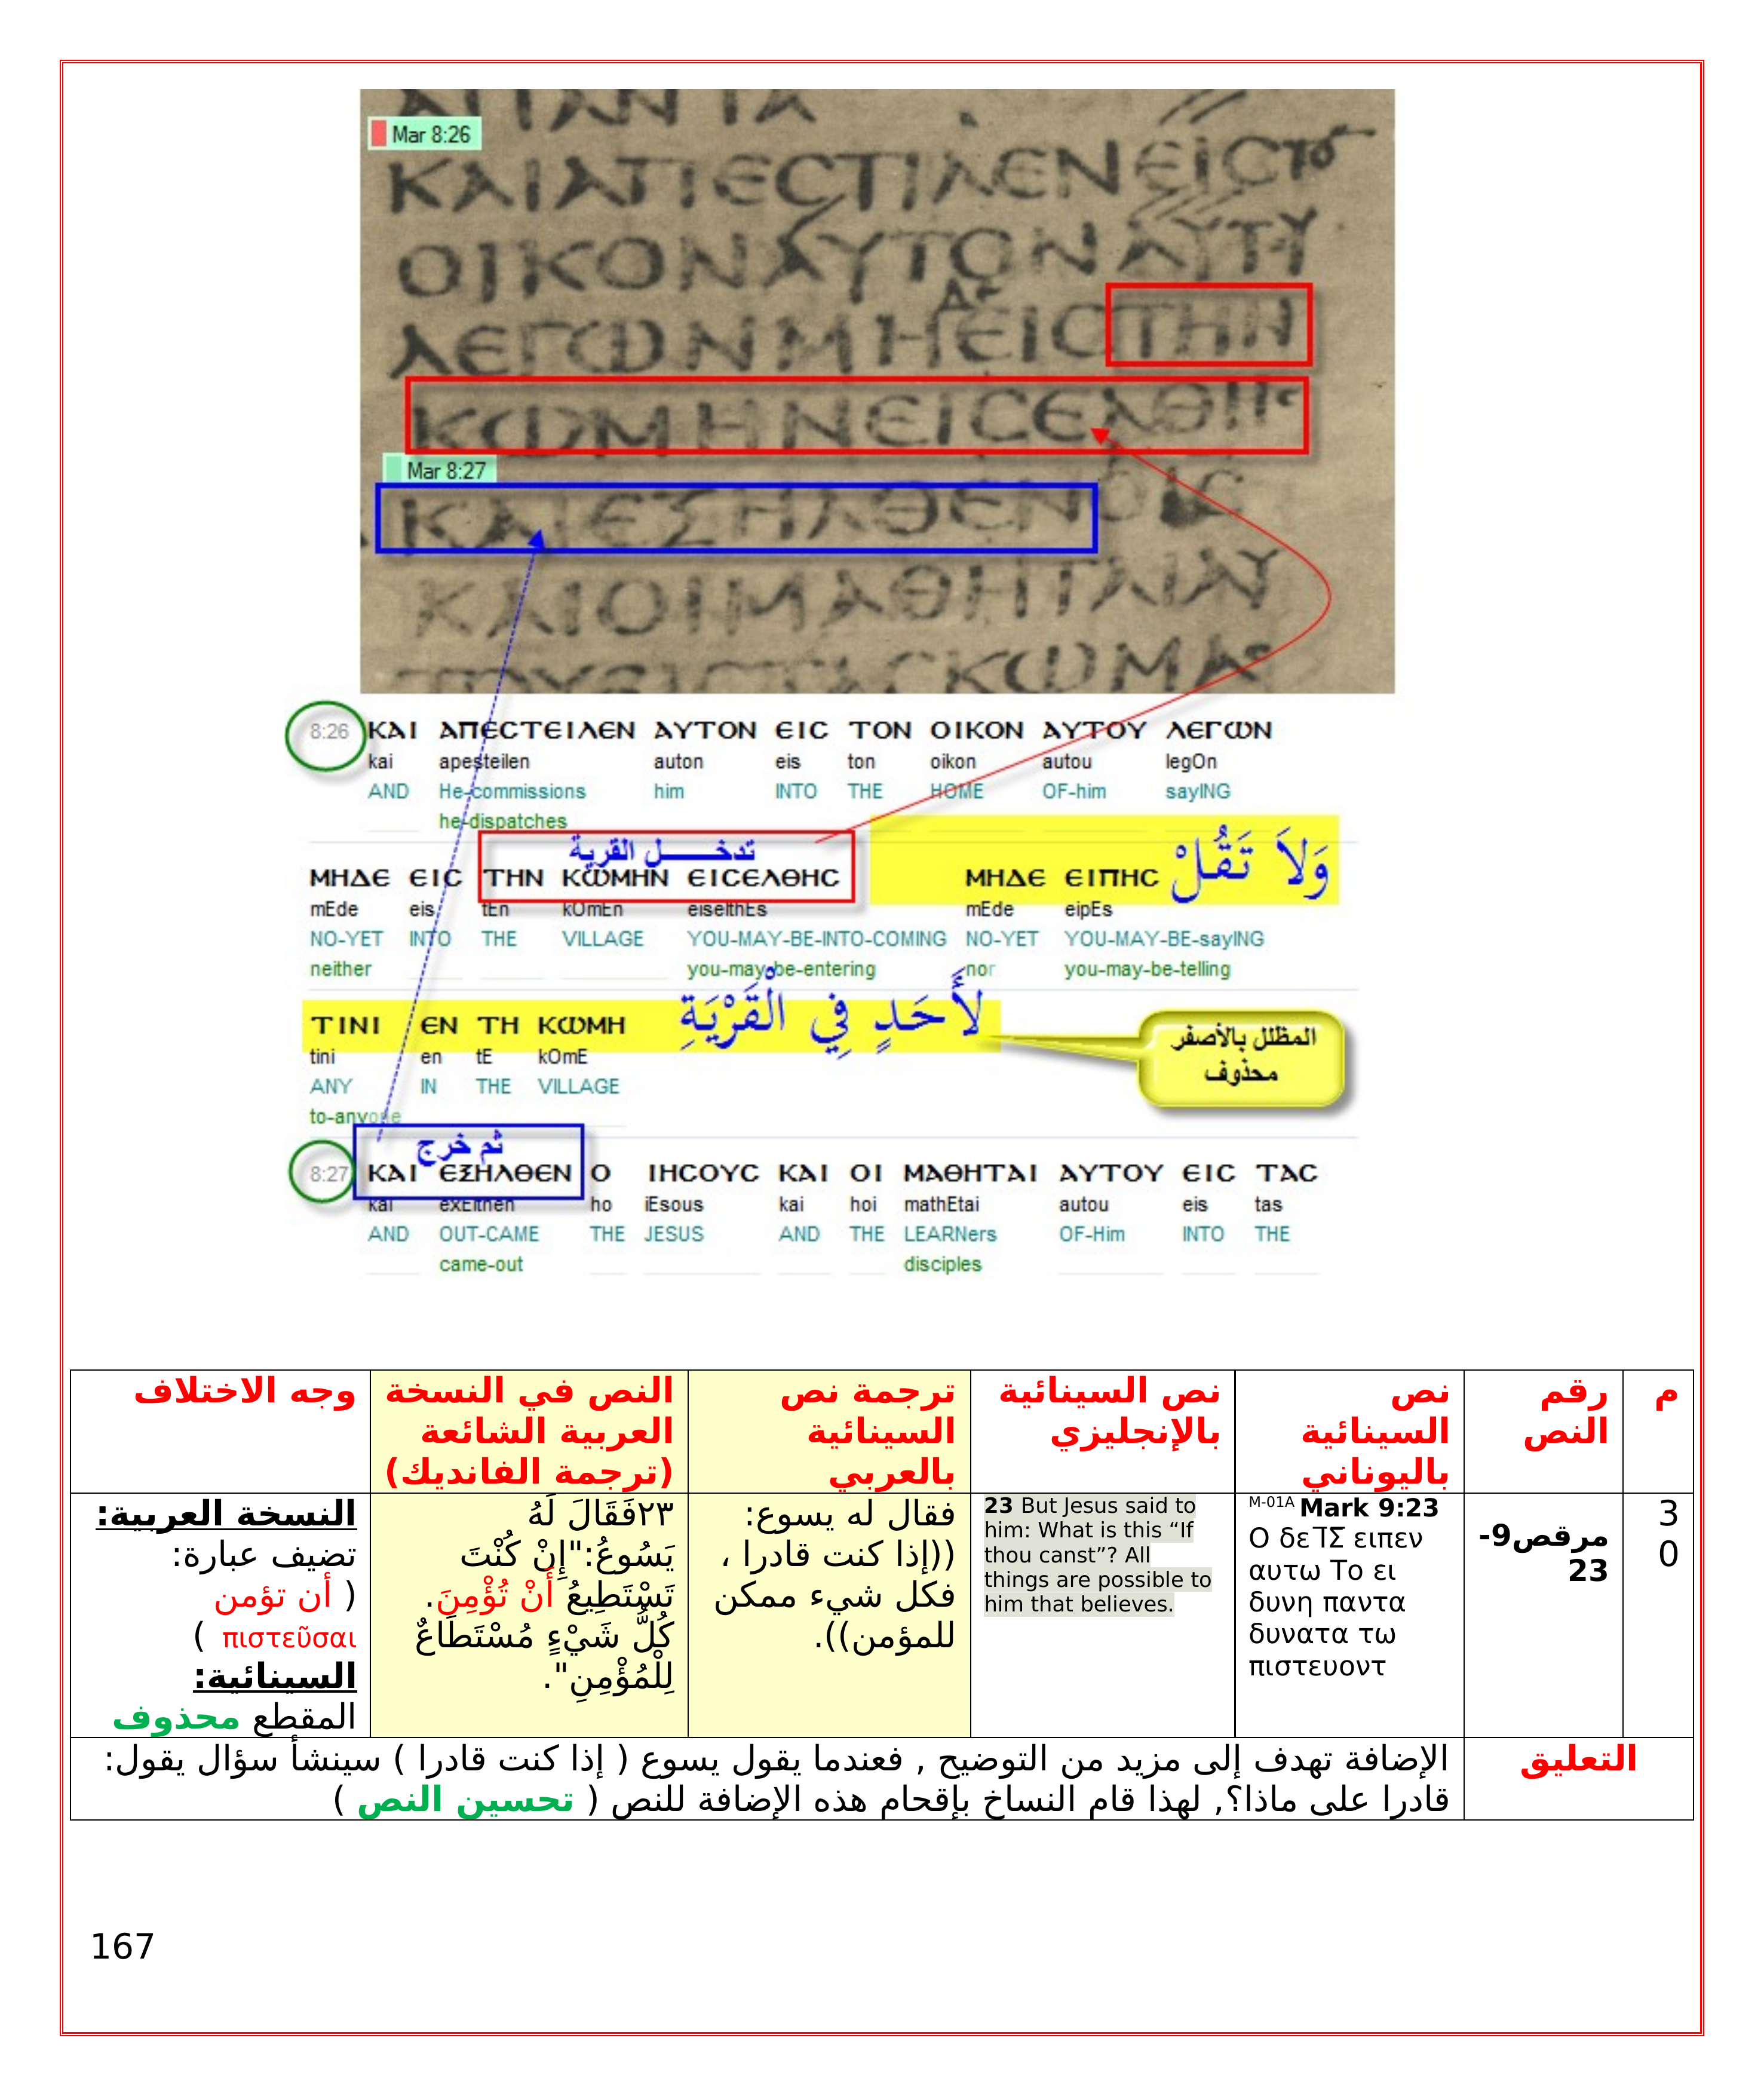 Mar 8:26
ΚΑΙΑΠΕCΤΙΛΕΝΕΙCΤΟ
ΟΙΚΟΝΑΥΤΟΝΑΥΤΥ
ΛΕΓΩΝΜΗΕΙCΤΗΝ
ΚΩΜΗΝΕΙCΕΛΘΗC
Mar 8:27
ΚΑΙΕΞΗΛΘΕΝΟΙC
ΚΑΙΟΙΜΑΘΗΤΑΙΑΥ
8:26 ΚΑΙ ΑΠΕCΤΕΙΛΕΝ ΑΥΤΟΝ ΕΙC ΤΟΝ ΟΙΚΟΝ ΑΥΤΟΥ ΛΕΓΩΝ
kai apesteilen auton eis ton oikon autou legOn
AND He-commissions him INTO THE HOME OF-him sayING
he-dispatches
تدخــــــل القرية
وَلاَ تَقُلْ
ΜΗΔΕ ΕΙC ΤΗΝ ΚΩΜΗΝ ΕΙCΕΛΘΗC ΜΗΔΕ ΕΙΠΗC
mEde eis tEn kOmEn eiselthEs mEde eipEs
NO-YET INTO THE VILLAGE YOU-MAY-BE-INTO-COMING NO-YET YOU-MAY-BE-sayING
neither you-may-be-entering nor you-may-be-telling
لأَحَدٍ فِي الْقَرْيَةِ
ΤΙΝΙ ΕΝ ΤΗ ΚΩΜΗ
tini en tE kOmE
ANY IN THE VILLAGE
to-anyone
المظلل بالأصفر
محذوف
ثم خرج
8:27 ΚΑΙ ΕΞΗΛΘΕΝ Ο ΙΗCΟΥC ΚΑΙ ΟΙ ΜΑΘΗΤΑΙ ΑΥΤΟΥ ΕΙC ΤΑC
kai exElthen ho iEsous kai hoi mathEtai autou eis tas
AND OUT-CAME THE JESUS AND THE LEARNers OF-Him INTO THE
came-out disciples
م
رقم
النص
نص
السينائية
باليوناني
نص السينائية
بالإنجليزي
ترجمة نص
السينائية
بالعربي
النص في النسخة
العربية الشائعة
(ترجمة الفانديك)
وجه الاختلاف
3
0
مرقص9-
23
M-01A Mark 9:23
Ο δε ΙΣ ειπεν
αυτω Το ει
δυνη παντα
δυνατα τω
πιστευοντ
23 But Jesus said to
him: What is this “If
thou canst”? All
things are possible to
him that believes.
فقال له يسوع:
((إذا كنت قادرا ،
فكل شيء ممكن
للمؤمن)).
٢٣فَقَالَ لَهُ
يَسُوعُ:"إِنْ كُنْتَ
تَسْتَطِيعُ أَنْ تُؤْمِنَ.
كُلُّ شَيْءٍ مُسْتَطَاعٌ
لِلْمُؤْمِنِ".
النسخة العربية:
تضيف عبارة:
( أن تؤمن
πιστεῦσαι )
السينائية:
المقطع محذوف
التعليق
الإضافة تهدف إلى مزيد من التوضيح , فعندما يقول يسوع ( إذا كنت قادرا ) سينشأ سؤال يقول:
قادرا على ماذا؟, لهذا قام النساخ بإقحام هذه الإضافة للنص ( تحسين النص )
167